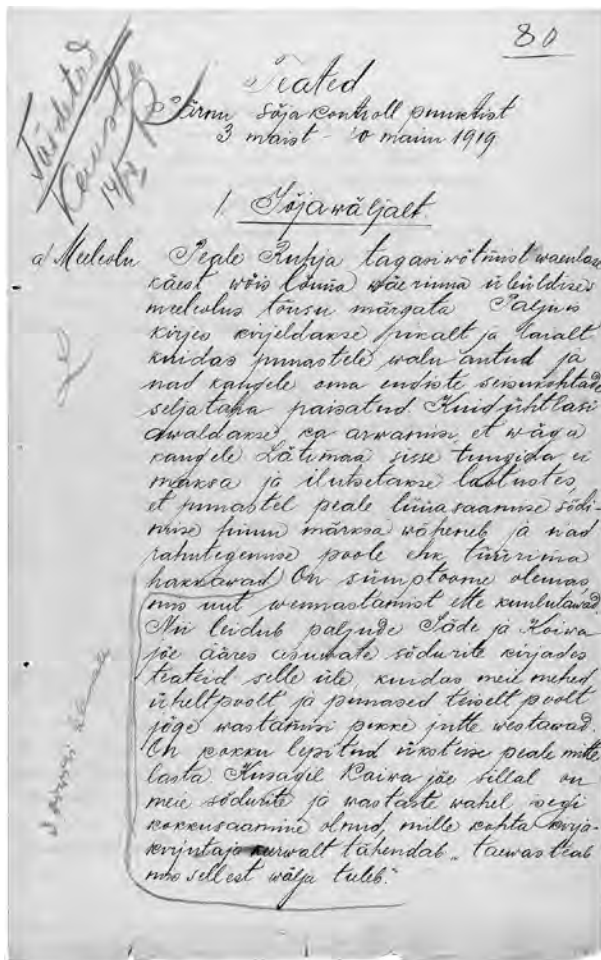 80
Teated
Pärnu Sõjakontroll punktist
3 maist – 10 maini 1919
1. Sõjawäljalt.
a) Meeleolu Peale Ruhja tagasiwõtmist waenlase
käest wõis lõuna wäerinna üleüldises
meeleolus tõusu märgata Paljus
kirjes kirjeldakse pikalt ja laialt
kuidas punastele walu antud ja
nad kaugele oma endiste seisukohtade
seljataha paisatud Kuid ühtlasi
awaldakse ka arwamisi, et wäga
kaugele Lätimaa sisse tungida ei
maksa ja ilutsetakse lootustes,
et punastel peale lüüasaamise sõdi-
mise himu märksa wäheneb ja nad
rahutegemise poole ehk tüürima
hakkawad On sümptoome olemas,
mis uut wennastamist ette kuulutawad.
Nii leidub paljude Säde ja Koiwa
jõe ääres asuwate sõdurite kirjades
teateid selle üle, kuidas meie mehed
üheltpoolt ja punased teiselt poolt
jõge wastamisi pikke jutte westawad.
On kokku lepitud üksteise peale mitte
lasta. Kusagil Kaiwa jõe sillal on
meie sõdurite ja wastaste wahel isegi
kokkusaamine olnud, mille kohta kirja-
kirjutaja kurwalt tähendab „taewas teab
mis sellest wälja tuleb."